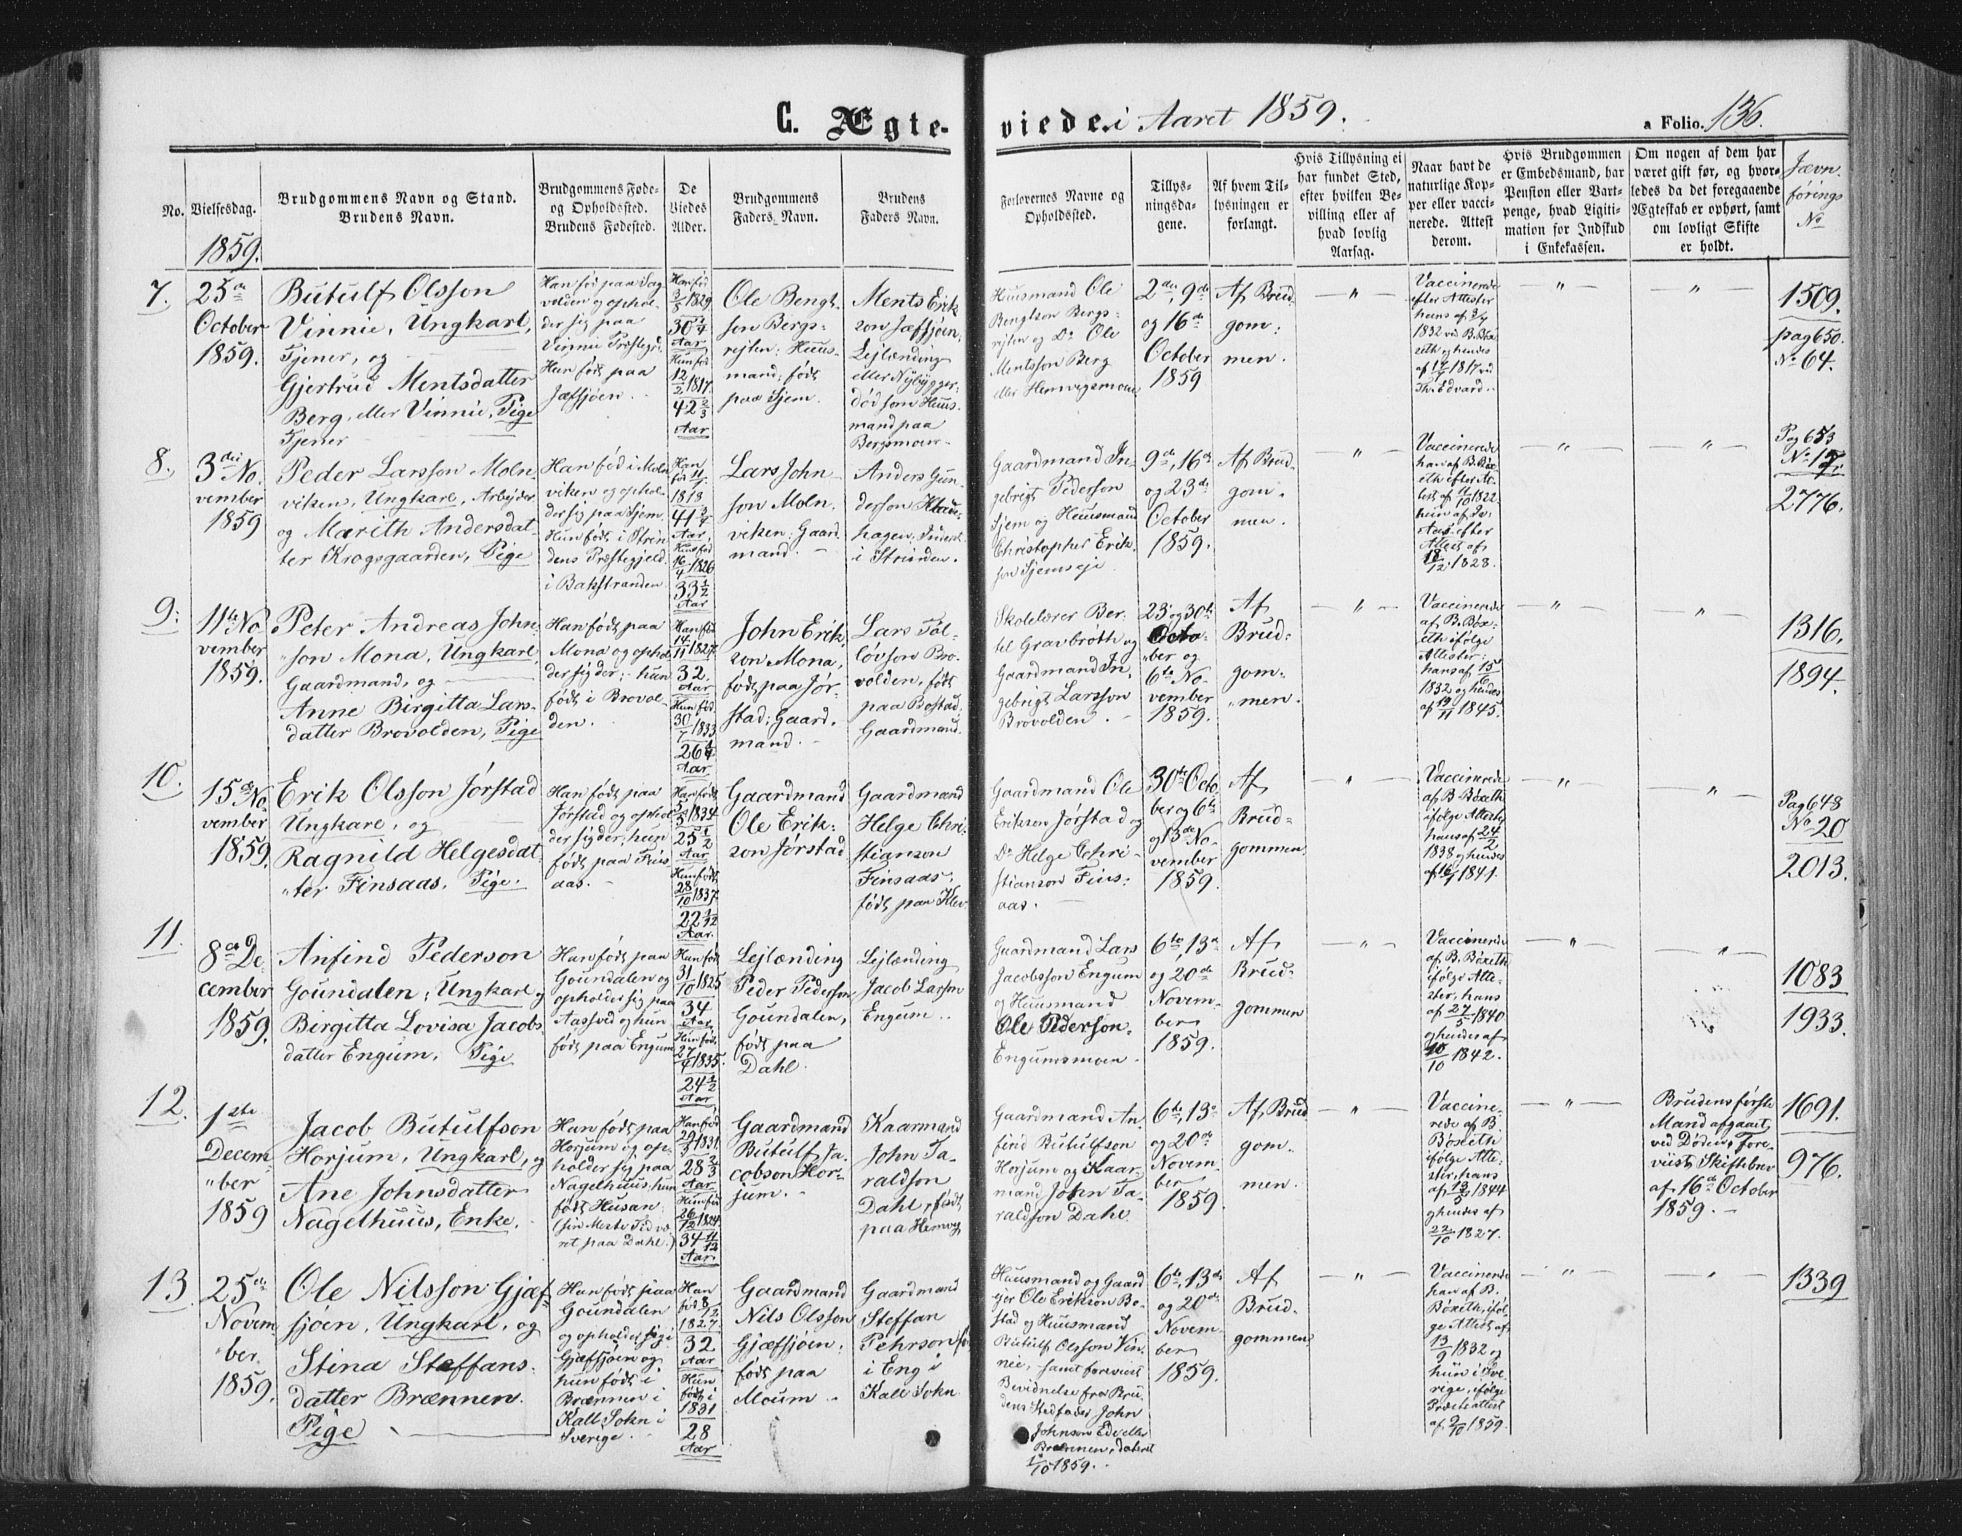 C. Ægte-
viede. i Aaret 1859.
a Folio. 136.
No.
Vielsesdag.
Brudgommens Navn og Stand.
Brudens Navn.
Brudgommens Føde-
og Opholdssted.
Brudens Fødested.
De
Viedes
Alder.
Brudgommens
Faders Navn.
Brudens
Faders Navn.
Forlovernes Navne og
Opholdssted.
Tillys-
ningsda-
gene.
Af hvem Til-
lysningen er
forlangt.
Hvis Tillysning ei
har fundet Sted,
efter hvilken Be-
villing eller af
hvad lovlig
Aarsag.
Naar havt de
naturlige Kop-
per eller vacci-
nerede. Attest
derom.
Hvis Brudgommen
er Embedsmand, har
Pension eller Vart-
penge, hvad Ligiti-
mation for Indskud
i Enkekassen.
Om nogen af dem har
været gift før, og hvor-
ledes da det foregaaende
Ægteskab er ophørt, samt
om lovligt Skifte
er holdt.
Jævn-
førings
No
1859.
7.
25de
October
1859.
Butulf Olsson
Vinnie, Ungkarl,
Tjener, og
Gjertrud Mentsdatter
Berg, eller Vinnie, Pige
Tjener
Han fød paa
velden og ophol-
der sig paa
Vinnie
Hun født paa
Jæfsjøen.
Han fød
3/5 1829
30 1/4
Aar
Hun fød
12/2 1817
42 2/3
Aar
Ole Bengt-
son Bergs-
rejten: Huus-
mand; født
paa Sjem.
Ments Erik
son Jæfsjøen,
Lejlænding
eller Nybygger
død som Huus-
mand paa
Bergsmoen
Huusmand Ole
Bengtson Bergs-
rejten og Do Ole
Mentsson Berg
eller
2den, 9de
og 16de
October
1859
Af Brud-
gom-
men.
Vaccinerede
efter Attester
hans af
1832 ved B. Bøx-
eth og hendes
af 1817 ved
1509.
pag 650.
No 64.
8.
3die No
vember
1859
Peder Larsson Moln-
viken, Ungkarl, Arbejder
og Marith Andersdat-
ter Krogsgaarden, Pige
Han fød i Moln
viken og ophol-
der sig paa Sjem
Hun født i Strin-
dens Præstegjeld
i Bakstranden
Han
fød
1818
41 3/4
Aar
Hun fød
16/4 1826
33 1/2
Aar
Lars John-
son Moln-
viken: Gaard-
mand.
Anders Gun-
derson
hagen:
i Strinden.
Gaardmand In-
gebrigt Pederson
Sjem og Huusmand
Christopher Erik-
son Sjemseje
9de, 16de
og 23de
October
1859.
Af Brud-
gom-
men.
Vaccinerede
han af B. Bøx-
eth efter At-
test af 1822.
hun af
efter
Attest af
18/12 1828.
Pag 653
No
2776.
9.
11te No
vember
1859.
Peter Andreas John-
son Mona, Ungkarl,
Gaardmand, og
Anne Birgitta Lars-
datter Brovolden, Pige
Han født paa
Mona og ophol-
der sig der; hun
født i Brovol-
den.
Han fød
14/11 1827
32.
Aar
Hun fød
30/7 1833
26 1/4
Aar
John Erik
son Mona,
født paa Jør-
stad; Gaard-
mand.
Lars Tol-
løvson Bro-
volden, født
paa Bostad.
Gaardmand
Skolelærer Ber-
tel Gravbrøth og
Gaardmand In-
gebrigt Larsson
Brovolden.
23 og 30te
Octo-
ber og
6te No-
vember
1859.
Af
Brud-
gom-
men.
Vaccinerede
af B. Bøx-
eth ifølge
Attester:
hans af 15/6
1832 og hendes
af 19/11 1845.
1316.
1894.
10.
15de No-
vember
1859.
Erik Olsson Jørstad
Ungkarl, og
Ragnild Helgesdat-
ter Finsaas, Pige.
Han født paa
Jørstad og ophol-
der sig der; hun
født paa Fins-
aas.
Han født
5/5 1834
25 1/2
Aar
Hun født
28/10 1837.
22 1/12
Aar.
Gaardmand
Ole Erik-
son Jørstad
Gaardmand
Helge Chri-
stianson
Finsaas,
født paa Klev
Gaardmand Ole
Erikson Jørstad og
Do Helge Chri-
stianson Fins-
aas.
30te Octo-
ber og 6te
og 13de No-
vember
1859.
Af
Brud-
gommen
Vaccinerede
af B. Bøxeth
ifølge Attester
hans af 24/2
1838 og hendes
af 1841.
Pag 648
No 20
2013.
11.
8de De-
cember
1859.
Anfind Pederson
Goundalen, Ungkarl og
Birgitta Lovisa Jacobs
datter Engum, Pige
Han født paa
Goundalen og
opholder sig paa
Aasved og hun
født paa Engum
Han født
31/10 1825
34
Aar
Hun født
27/4 1835.
24 1/2
Aar
Lejlænding
Peder Pederson
Goundalen,
født paa
Dahl.
Lejlænding
Jacob Larson
Engum.
Gaardmand Lars
Jacobsson Engum
og Huusmand
Ole Pederson
Engumsmoen
6te, 13de
og 20de
Novem-
ber
1859.
Af
Brud-
gommen
Vaccinerede
af B. Bøxeth
ifølge Atte-
ster, hans
af 27/5 1840
og hendes af
10/10 1842.
1083
1933.
12.
1ste
Decem-
ber
1859
Jacob Butulfson
Horjum, Ungkarl, og
Ane Johnsdatter
Nagelhuus, Enke.
Han født paa
Horjum og op-
holder sig paa
Nagelhuus; hun
født Husan,
(sin Meste Tid væ-
ret paa Dahl.)
Han fød
29/3 1831
28 2/3
Aar
Hun fød
26/12 1824
34 11/12
Aar
Gaardmand
Butulf Ja-
cobson Hor-
jum.
Kaarmand
John Ta-
raldson
Dahl, født
paa Hemveg
Gaardmand An-
find Butulfson
Horjum og Kaar-
mand John Ta-
raldson Dahl
6te, 13de
og 20de
Novem-
ber
1859
Af Brud
gom-
men.
Vaccine-
rede af B.
Bøxeth
ifølge Atte-
ster, hans
af 13/5 1844
og hendes af
22/10 1827.
Brudens første
Mand afgaaet
ved Døden. Fore-
viist Skiftebrev
af 16de October
1859.
1691.
976.
13
25de
Novem-
ber
1859.
Ole Nilsson Gjæf-
sjøen, Ungkarl, og
Stina Steffans-
datter Brænnen,
Pige
Han født paa
Goundalen
og opholder sig i
Gjæfsjøen og
hun født i
Brænnen i
Kall Sokn i
Sverige.
Han
fød 8/12
1827
32
Aar
Hun
født i
1831
28
Aar
Gaardmand
Nils Olsson
Gjæfsjøen,
født paa
Moum
Gaardmand
Steffan
Pehrson
i Eng i
Kall Sokn
Huusmand og Gaard-
ejer Ole Erikson Bo-
stad og Huusmand
Butulf Olsson Vin-
nie, samt foreviist
Bevidnelse fra Bru-
dens Stedfader John
Johnson Ede eller
Brænnen, dateret
1/10 1859.
6te, 13de
og 20de
Novem-
ber
1859.
Af
Brud-
gommen
Vaccinerede
han af B.
Bøxeth, iføl-
ge Attest af
13/9 1832 og
hun i Sve-
rige, ifølge
Præsteattest
af 2/10 1859.
1339